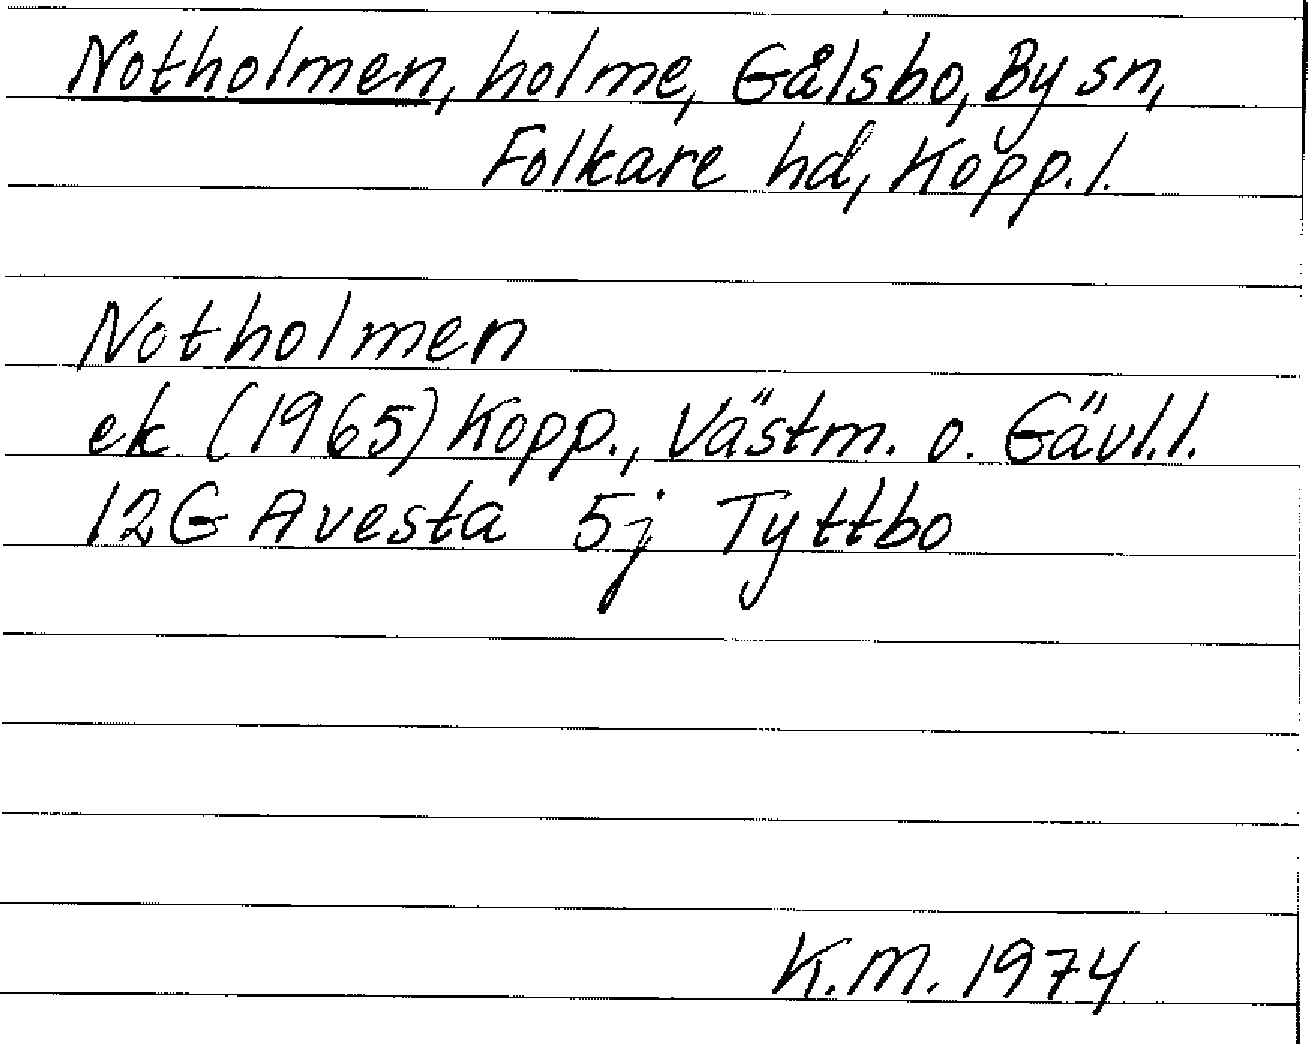 Notholmen, holme, Gålsbo, By sn,
Folkare hd, Kopp. l.
Notholmen
ek (1965) Kopp., Västm. o. Gävl. l.
12G Avesta 5j Tyttbo
K.M. 1974